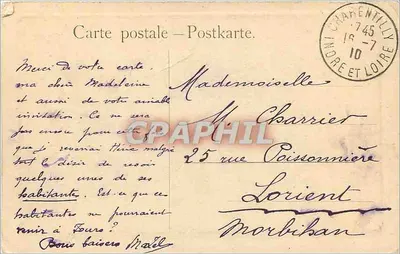 Carte postale – Postkarte.
CHARENTILLY
7 45
18 - 7
10
INDRE ET LOIRE
Merci de votre carte
ma chère Madeleine
et aussi de votre aimable
invitation. Ce ne sera
pas encore pour cette fois
que je reverrai malgré
tout le désir de revoir
quelques unes de ses
habitantes. Est-ce que ces
habitantes ne pourraient
venir à Tours?
Bons baisers
Mademoiselle
M Charrier
25 rue Poissonnière
Lorient
Morbihan
CPAPHIL